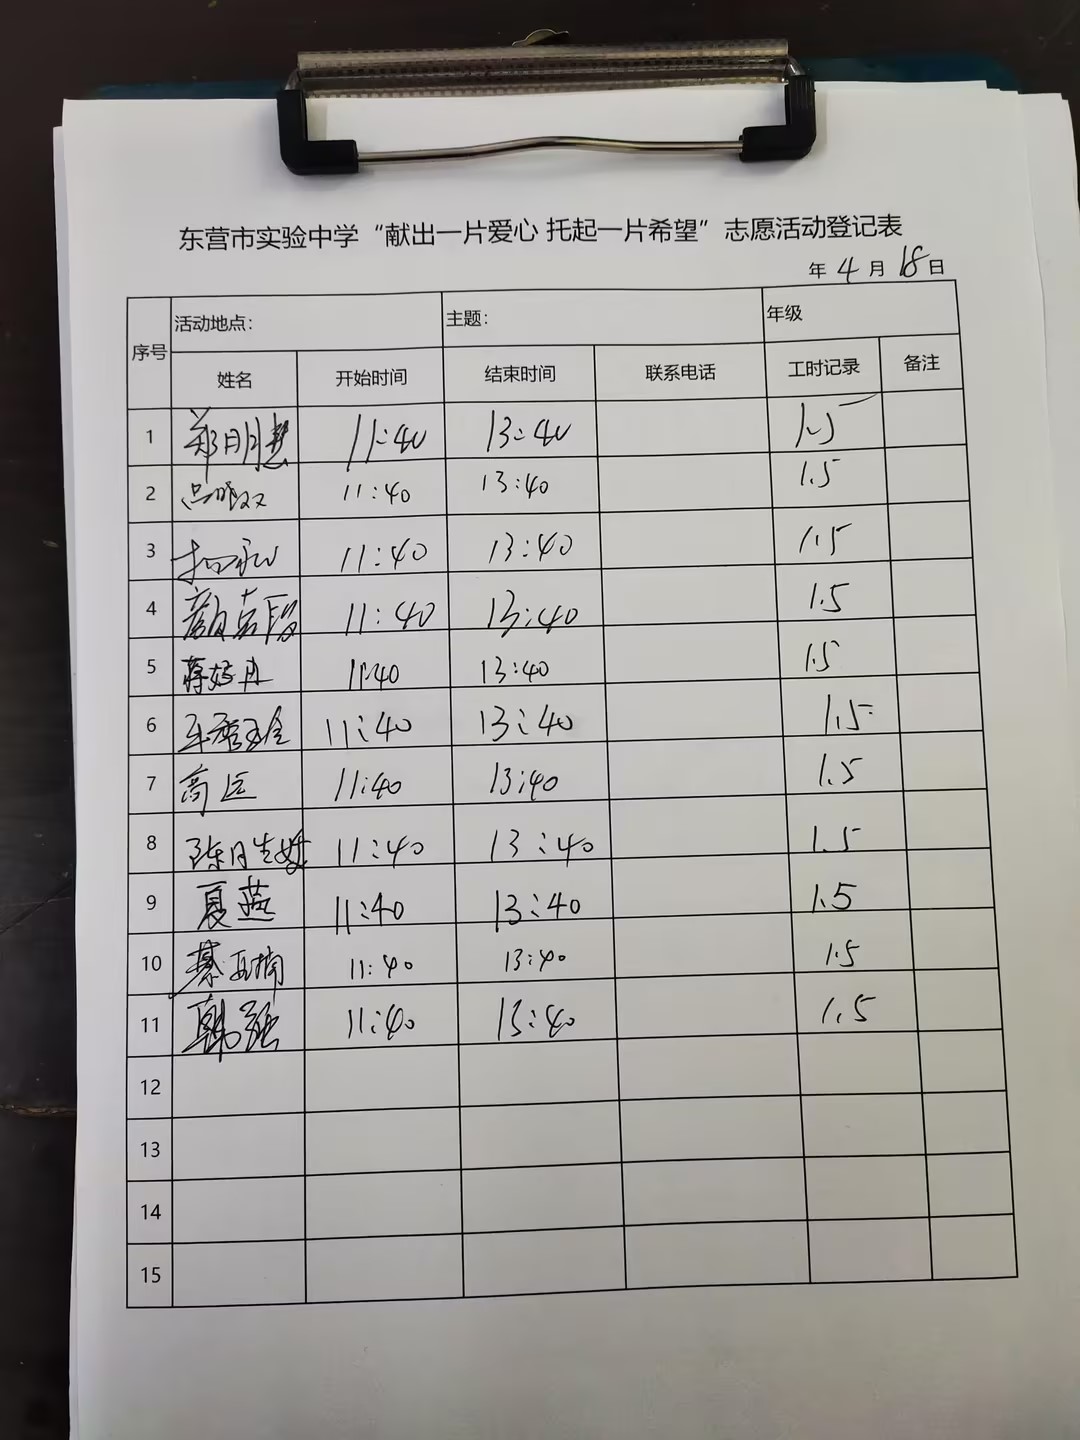 东营市实验中学“献出一片爱心 托起一片希望”志愿活动登记表
年 4 月 18 日
序号 活动地点： 主题： 年级
姓名 开始时间 结束时间 联系电话 工时记录 备注
1 郑明慧 11:40 13:40 1.5
2 11:40 13:40 1.5
3 11:40 13:40 1.5
4 颜 11:40 13:40 1.5
5 蒋 11:40 13:40 1.5
6 11:40 13:40 1.5
7 高 11:40 13:40 1.5
8 陈 11:40 13:40 1.5
9 夏燕 11:40 13:40 1.5
10 綦 11:40 13:40 1.5
11 韩强 11:40 13:40 1.5
12
13
14
15